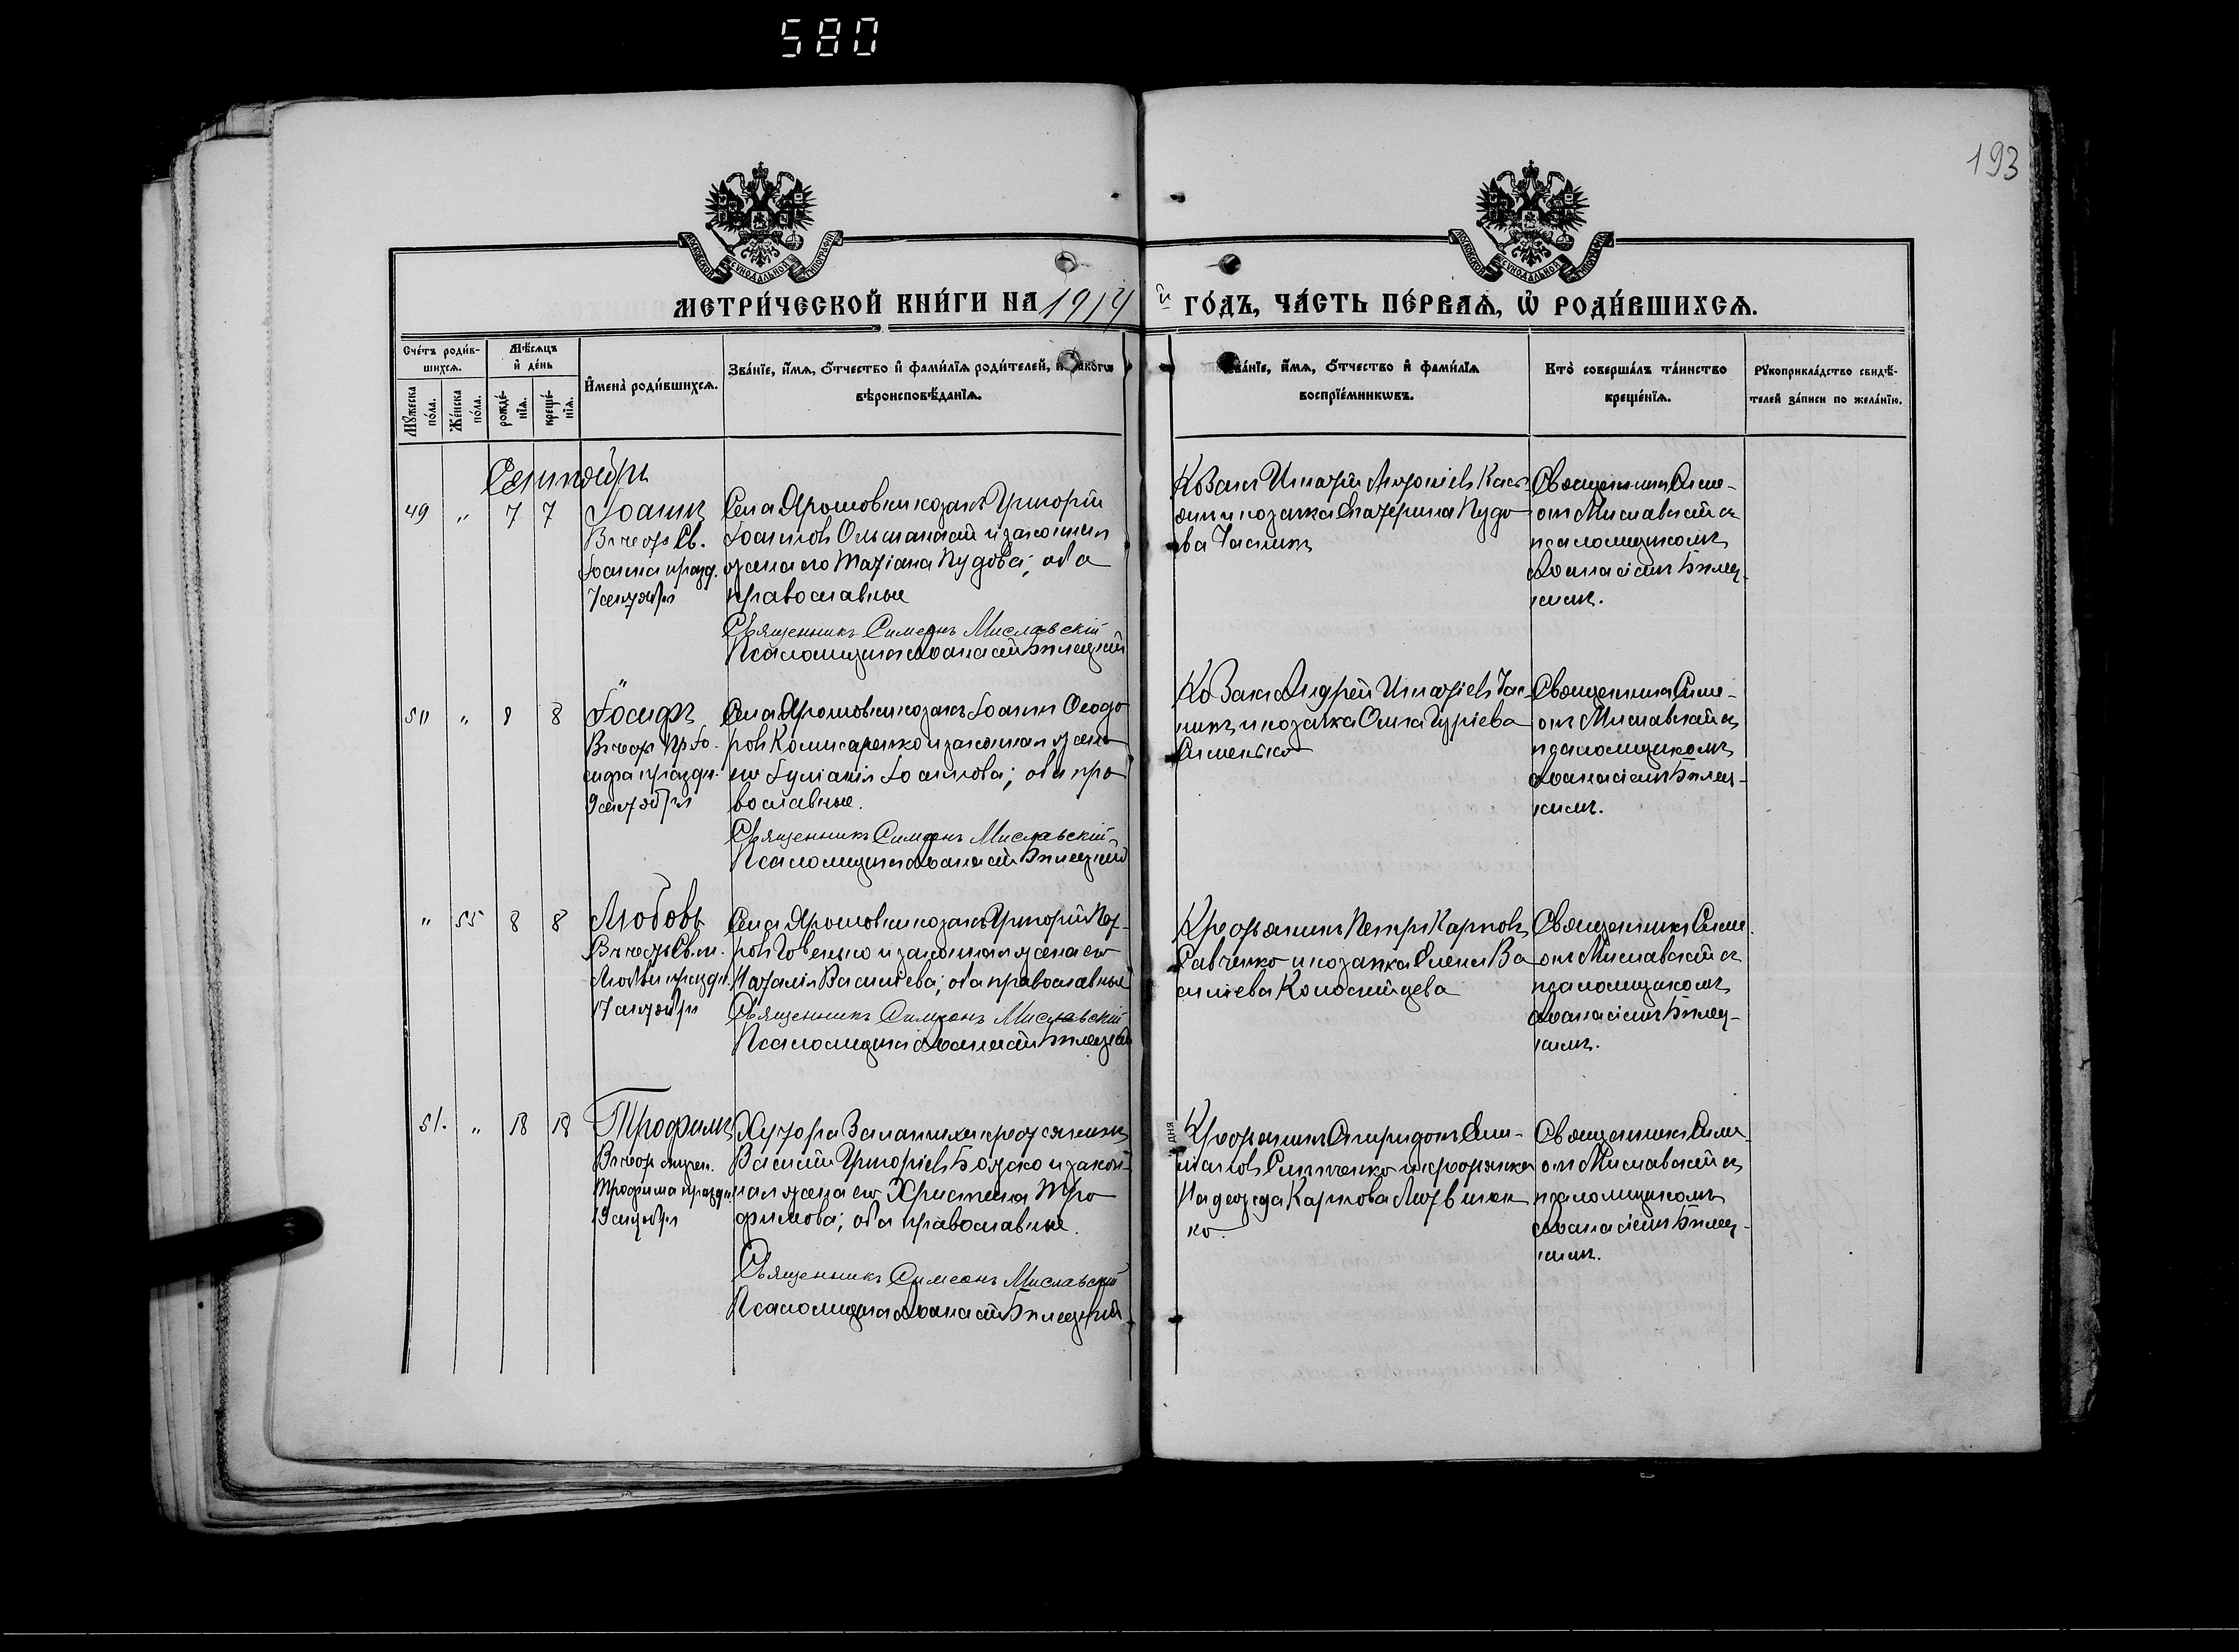 580
193
МОСКОВСКОЙ СѴНОДАЛЬНОЙ ТИПОГРАФІИ
МОСКОВСКОЙ СѴНОДАЛЬНОЙ ТИПОГРАФІИ
МЕТРИ́ЧЕСКОЙ КНИ́ГИ НА 1914 й ГО́ДЪ, ЧА́СТЬ ПЕ́РВАѦ, Ѡ҆ РОДИ́ВШИХСѦ.
Сче́тъ роди́в-
шихсѧ.
Мꙋ́жеска
по́ла.
Же́нска
по́ла.
Мѣ́сѧцъ
и҆ де́нь
рожде́-
нїѧ.
креще́-
нїѧ.
И҆мена̀ роди́вшихсѧ.
Зва́нїе, и҆́мѧ, ѻ҆́тчество и҆ фами́лїѧ роди́телей, и҆ како́гѡ
вѣ̀роисповѣ́данїѧ.
Зва́нїе, и҆́мѧ, ѻ҆́тчество и҆ фами́лїѧ
воспрїе́мникѡвъ.
Кто̀ соверша́лъ та́инство
креще́нїѧ.
Рꙋкоприкла́дство свидѣ́-
телей за́писи по жела́нїю.
Сентябрь
49 " 7 7
Іоаннъ
Въ честь Св.
Іоанна празд.
7 сентября
Села Ярошовки козакъ Григорій
Іоанновъ Ольшанскій и законная
жена его Татіана Пудова; оба
православные
Священникъ Симеонъ Миславскій
Псаломщикъ Аѳанасій Билецкій
Козакъ Игнатій
и козачка Екатерина Пудо
ва Часникъ
Священникъ Симе-
онъ Миславскій съ
псаломщикомъ
Аѳанасіемъ Билец-
кимъ.
50 " 8 8
Іосифъ
Въ честь Пр. Іо-
сифа праздн.
9 сентября
Села Ярошовки козакъ Іоаннъ Ѳеодо
ровъ Комисаренко и законная жена
его Іуліанія Іоаннова; оба пра
вославные.
Священникъ Симеонъ Миславскій
Псаломщикъ Аѳанасій Билецкій
Козакъ Андрей Игнатіевъ Час-
никъ и козачка Ольга Гуріева
Священникъ Симе-
онъ Миславскій съ
псаломщикомъ
Аѳанасіемъ Билец-
кимъ.
" 55 8 8
Любовь
Въ честь Св. м.
Любви праздн.
17 сентября
Села Ярошовки козакъ Григорій Пет-
ровъ и законная жена его
Наталія Васильева; оба православные
Священникъ Симеонъ Миславскій
Псаломщикъ Аѳанасій Билецкій
Крестьянинъ Петръ Карповъ
Савченко и козачка Елена Ва
сильева
Священникъ Симе-
онъ Миславскій съ
псаломщикомъ
Аѳанасіемъ Билец-
кимъ.
51. " 18 18
Трофимъ
Въ честь мучен.
Трофима праздн.
19 сентября
Хутора крестьянинъ
Василій Григоріевъ и закон-
ная жена его Христина Тро
фимова; оба православные.
Священникъ Симеонъ Миславскій
Псаломщикъ Аѳанасій Билецкій
дня
Крестьянинъ Спиридонъ
и крестьянка
Надежда Карпова Литвинен
ко.
Священникъ Симе-
онъ Миславскій съ
псаломщикомъ
Аѳанасіемъ Билец-
кимъ.